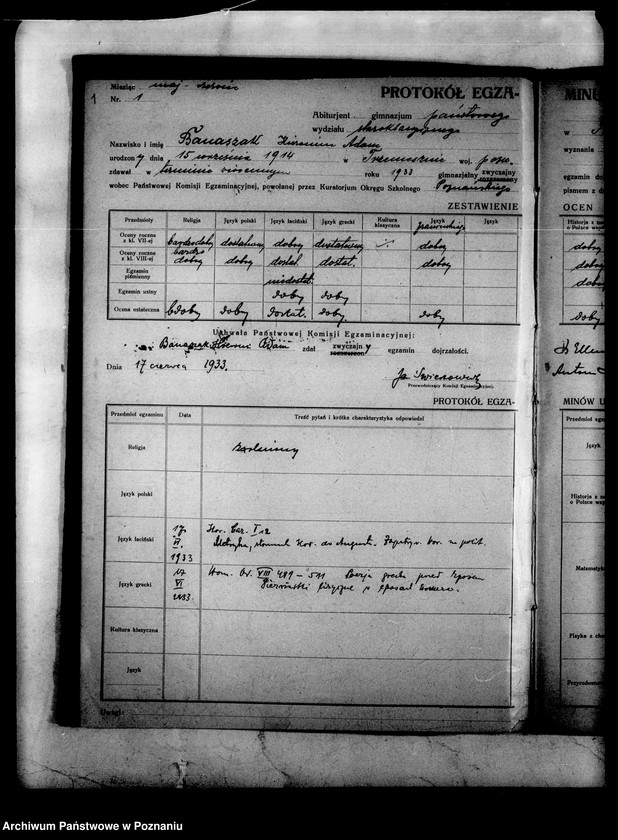 1
Miesiąc maj
Nr. 1
PROTOKÓŁ EGZA-
Abiturjent gimnazjum państwowego
wydziału staroklasycznego
Nazwisko i imię Banaszak Adam
urodzony dnia 15 września 1914 w Trzemesznie woj. pozn.
zdawał w terminie roku 1933 gimnazjalny zwyczajny
wobec Państwowej Komisji Egzaminacyjnej, powołanej przez Kuratorjum Okręgu Szkolnego Poznańskiego
ZESTAWIENIE
Przedmioty Religja Język polski Język łaciński Język grecki Kultura klasyczna Język francuski Język
Oceny roczne z kl. VII-ej bardzo dobry dostateczny dobry dostateczny dobry
Oceny roczne z kl. VIII-ej bardzo dobry dobry dostat. dostat. dobry
Egzamin piśmienny niedostat.
Egzamin ustny dobry dobry
Ocena ostateczna b dobry dobry dostat. dobry. dobry
Uchwała Państwowej Komisji Egzaminacyjnej:
Banaszak Adam zdał zwyczajny egzamin dojrzałości.
Dnia 17 czerwca 1933.
Przewodniczący Komisji Egzaminacyjnej.
PROTOKÓŁ EGZA-
Przedmiot egzaminu Data Treść pytań i krótka charakterystyka odpowiedzi
Religja zwolniony
Język polski
Język łaciński 17. VI. 1933 Hor. Car. I 12
Hor. do Augusta.
Język grecki 17 VI 1933. Hom. Od. VIII 489 – 511
Kultura klasyczna
Język
Uwagi:
MINU
w
wyznania
egzamin do
pismem z d
OCEN
Historja z
o Polsce wsp
dobry
dobry
dobry
dobry
MINÓW U
Przedmiot egz
Język
Historja z n
o Polsce wsp
Matematyk
Fizyka z ch
Przyrodozna
Archiwum Państwowe w Poznaniu